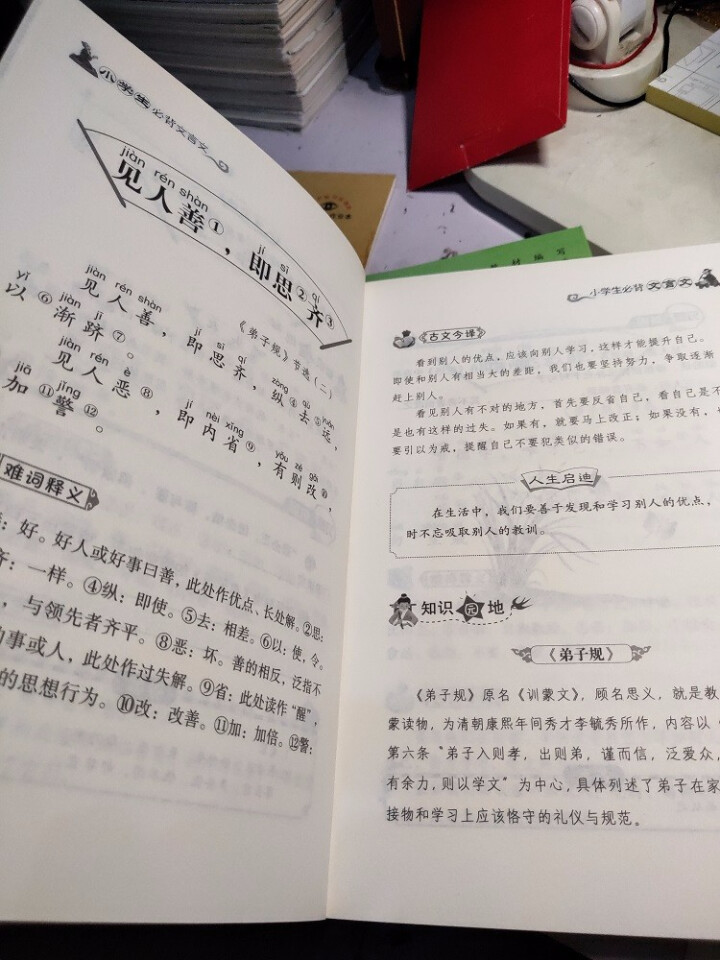 小学生必背文言文
jiàn rén shàn jí sī qí
见人善①，即思②齐③
《弟子规》节选（二）
jiàn rén shàn jí sī qí zòng qù yuǎn
见人善，即思齐，纵④去⑤远，
yǐ jiàn jī
以⑥渐跻⑦。
jiàn rén è jí nèi xǐng yǒu zé gǎi
见人恶⑧，即内省⑨，有则改⑩，
jiā jǐng
加⑪警⑫。
难词释义
：好。好人或好事曰善，此处作优点、长处解。②思：
齐：一样。④纵：即使。⑤去：相差。⑥以：使，令。
，与领先者齐平。⑧恶：坏。善的相反，泛指不
事或人，此处作过失解。⑨省：此处读作“醒”，
的思想行为。⑩改：改善。⑪加：加倍。⑫警：
材编写
小学生必背文言文
《古文今译》
看到别人的优点，应该向别人学习，这样才能提升自己。
即使和别人有相当大的差距，我们也要坚持努力，争取逐渐
赶上别人。
看见别人有不对的地方，首先要反省自己，看自己是不
是也有这样的过失。如果有，就要马上改正；如果没有，也
要引以为戒，提醒自己不要犯类似的错误。
人生启迪
在生活中，我们要善于发现和学习别人的优点，
时不忘吸取别人的教训。
知识园地
《弟子规》
《弟子规》原名《训蒙文》，顾名思义，就是教
蒙读物，为清朝康熙年间秀才李毓秀所作，内容以《
第六条“弟子入则孝，出则弟，谨而信，泛爱众，
有余力，则以学文”为中心，具体列述了弟子在家
接物和学习上应该恪守的礼仪与规范。